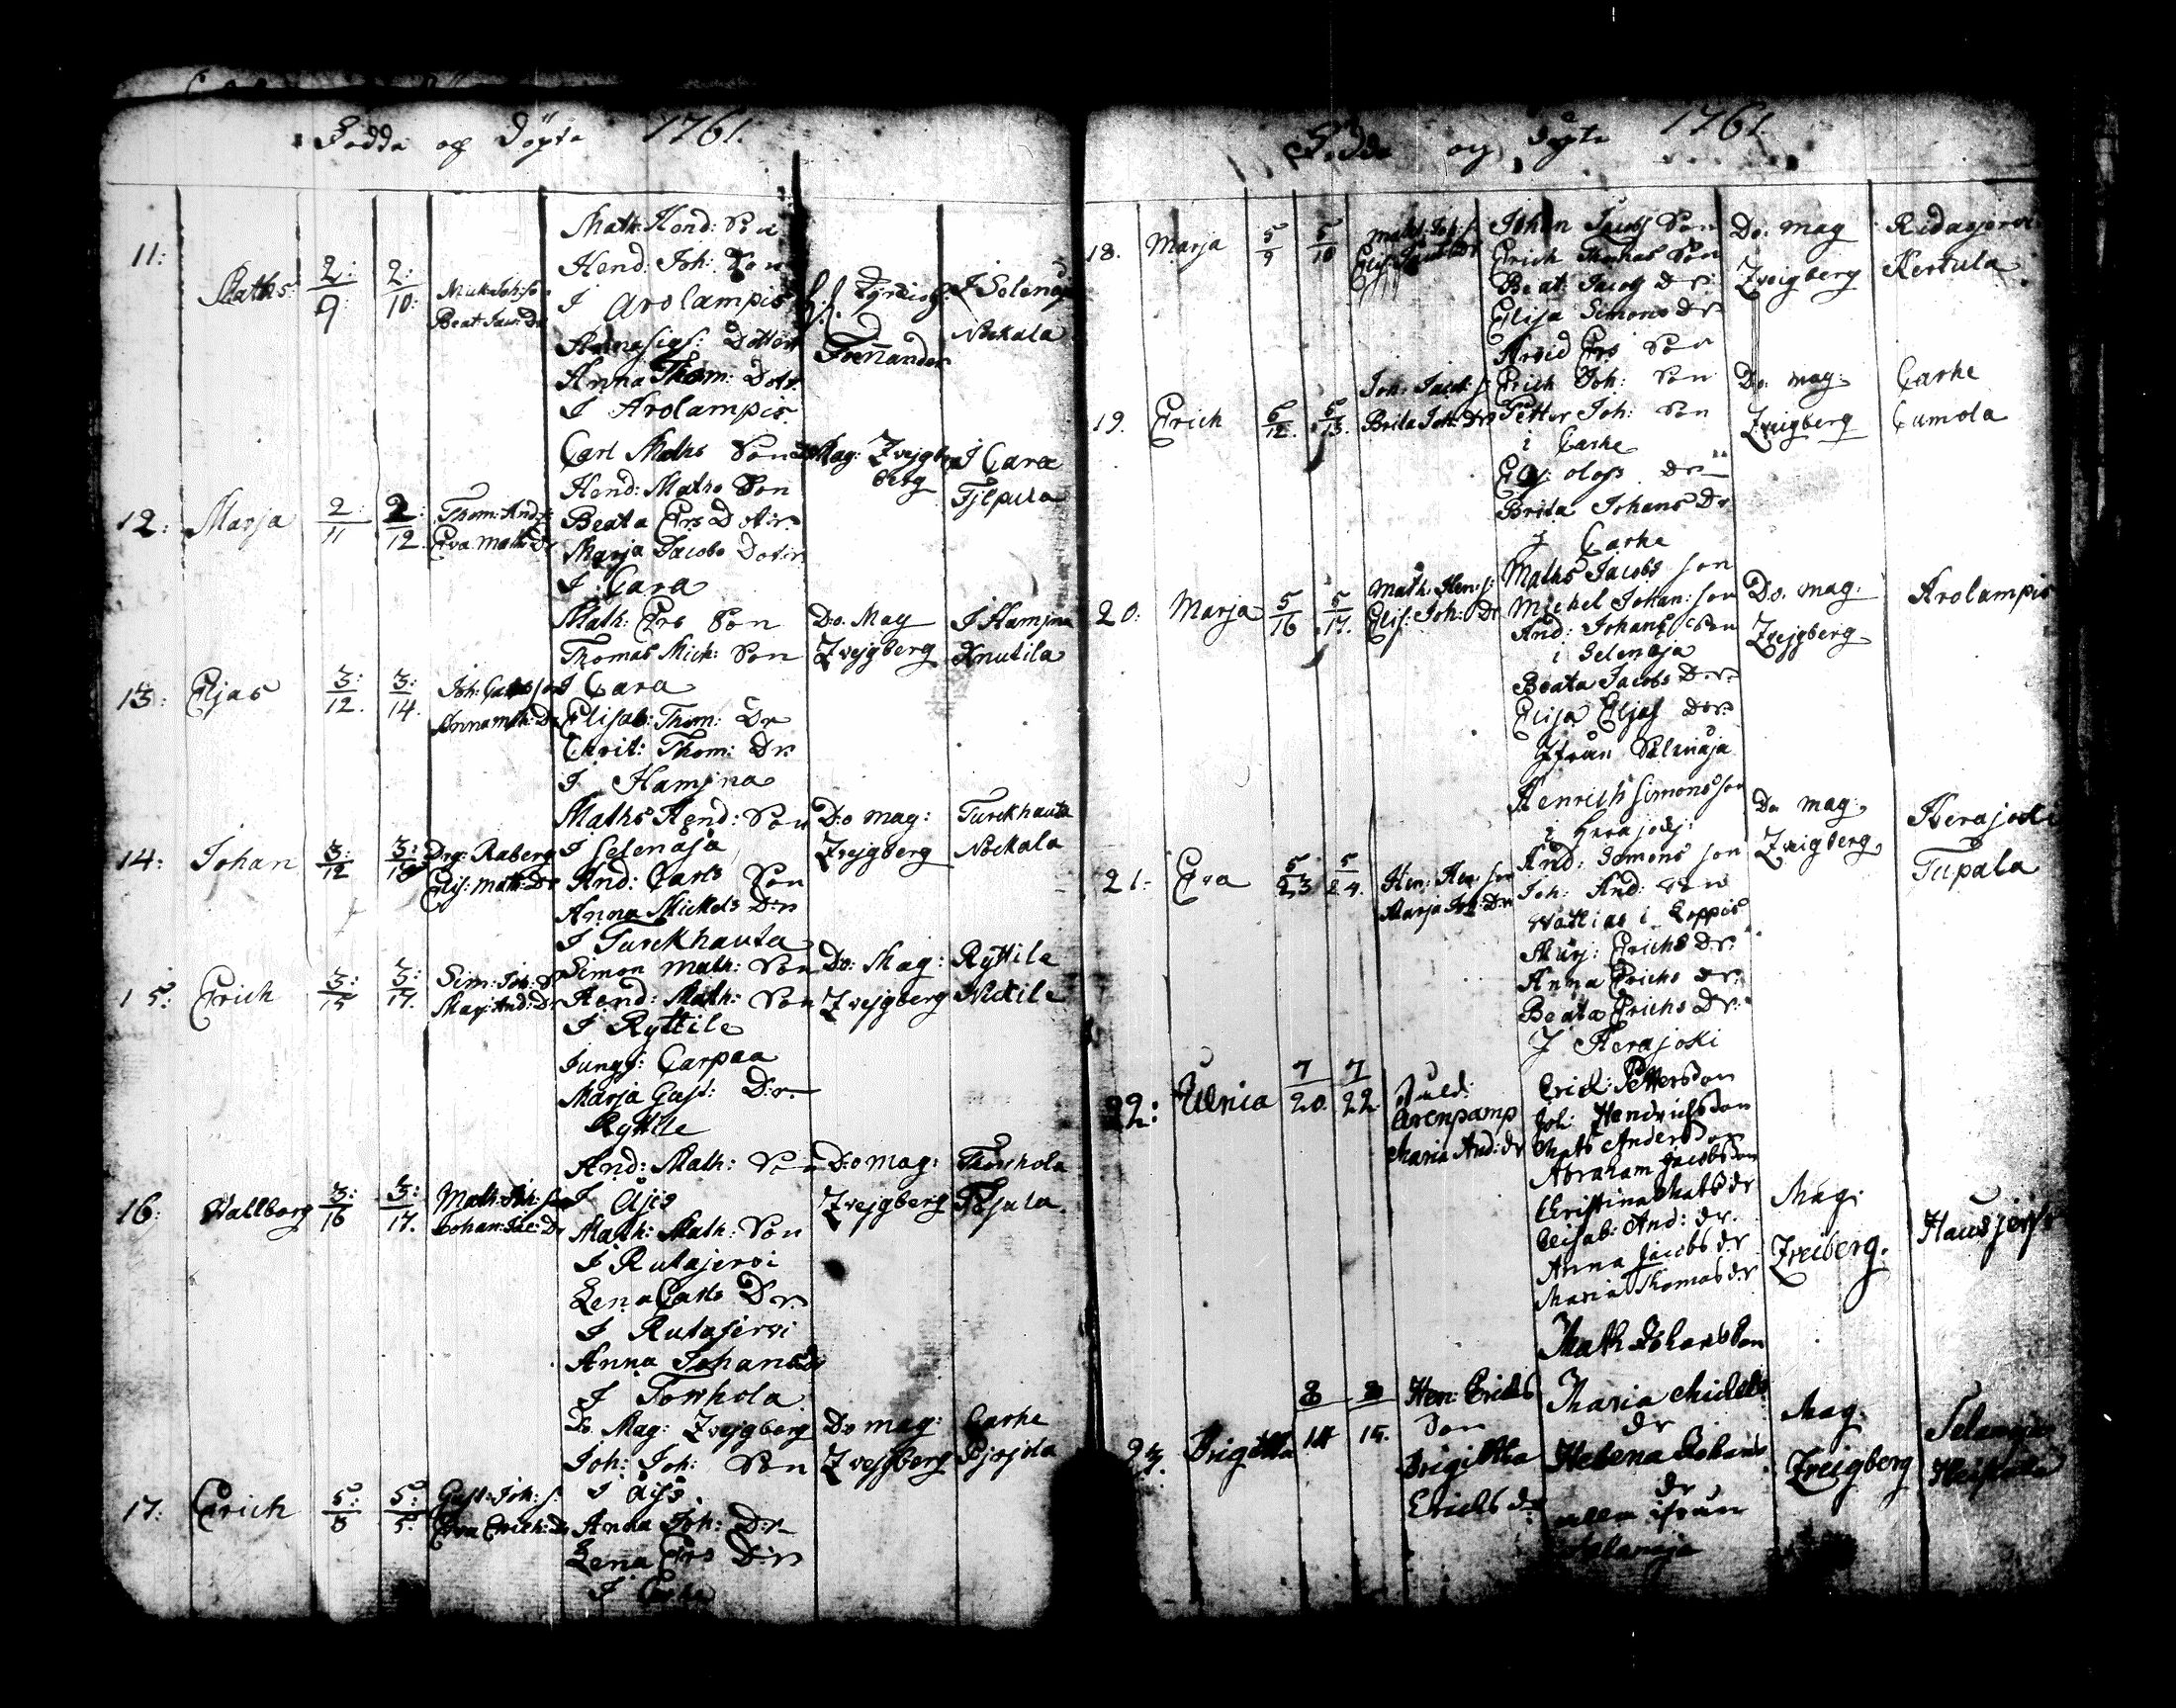 Födde og Döpte 1761.
11:
Maths
2:
9:
2:
10:
Mick: Joh: so
Beat: Jac: Dr
Math: Hend: Son
Hend: Joh: Son
J Arolampis
Anna Sigf: Dotter
Anna Thom: Dotr
J Arolampis
Forsnander
J Selenoja
Nockala
12:
Marja
2:
11
2:
12.
Thom: And: s:
Eva Math: Dr
Carl Maths Son
Hend: Maths Son
Beata Ers Dotr:
Marja Jacobs Dotr:
J Cara
Mag: Zvejgberg
berg
J Cara
Tjlpula
13:
Eljas
3:
12.
3:
14.
Joh: Carls son
Anna Mth: Dr
Math: Ers Son
Thomas Mich: Son
J Cara
Elisab: Thom: Dr
Christ: Thom: Dr:
J Hamjna
D:o. Mag
Zvejgberg
J Hamjna
Knutila
14:
Johan
3:
12
3:
Drg: Raberg
Elis: Math: Dr
Maths Hend: Son
J Selenåja
And: Carls Son
Anna Mickels D:r
J Turckhauta
D:o mag:
Zvejgberg
Turckhauta
Nockala
15:
Erich
3:
15
3:
17.
Sim: Joh: S
Marj: And: Dr
Simon Math: Son
Hend: Math: Son
J Ryttile
Jungf: Carpaa
Marja Gust: D:r.
Ryttile
Do: Mag:
Zvejgberg
Ryttile
Nickile
16:
Vallborg
3:
16
3:
17.
Math: Joh: son
Johan: Jac: Dr
And: Math: Son
J Åjis
Math: Math: Son
J Rutajervi
Lena Carls Dr
J Rutajervi
Anna Johans Dr
J Torrhola
D:o mag:
Zvejgberg
Torrhola
17.
Erich
5:
5
5:
5.
Gust: Joh: s:
Eva Erich: Dr
Do Mag: Zvejgberg
Joh: Joh: Son
J Åjis
Anna Joh: D:r
Lena Ers D:r
Do mag:
Zvejgberg
Carhe
Födde og Döpte 1761
18.
Marja
5
9
5
10
Maths Joh: s:
Elis: Jacobs Dr
Johan Jacobs Son
Erich Thomas Son
Beat: Jacobs Dr:
Elisa Simons Dr
Do. mag
Zveigberg
Ridasjervi
Kertula
19.
Erich
5
12.
5
13.
Joh: Jacob: s:
Brita Joh: Dr
Arvid Ers Son
Erich Joh: Son
Petter Joh: Son
i Carhe
Elis: Olofs Dr:
Brita Johans Dr
J Carhe
Do. mag:
Zveigberg
Carhe
Cumola
20:
Marja
5
16
5
17.
Math: Hen: s:
Elis: Joh: Dr
Maths Jacobs son
Michel Johan: son
And: Johans Son
i Selenoja
Beata Jacobs D:r:
Elisa Eljas Dr:
Ifrån Selenåja
Do. mag:
Zvejgberg
Arolampis
21:
Eva
5
23
5
24.
Hen: Hen: son
Marja Joh: Dr
Henrich Simons son
i Herajoki:
And: Simons son
Joh: And: Son
i Loppis
Marj: Erichs D:r:
Anna Erichs Dr:
Beata Erichs Dr:
J Herajoki
Do mag:
Zveigberg
Herajoki
Tupala
22:
Ulrica
7
20.
7
22
Arenpamp
Maria And: dr
Erick: Petterson
Joh: Hendrichson
Mats Anderson
Abraham Jacobsson
Christina Mats dr
Elisab: And: dr.
Anna Jacobs d:r
Maria Thomas d:r
Mag:
Zveiberg.
Hausjerfvi
23.
Brigitta
8
14
8
15.
Hen: Ericks
son
Brigittha
Ericks dr
Math Johansson
Maria Mickels
dr
Helena Johans
dr
alla ifrån
Selanoja
Mag:
Zveigberg
Selanoja